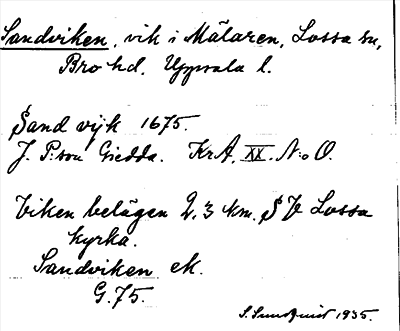 Sandviken, vik i Mälaren, Lossa sn,
Bro hd. Uppsala l.
Sand vijk 1675.
J. P:son Giedda. KrA, XX. N:o O.
Viken belägen 2,3 km. S V Lossa
kyrka.
Sandviken ek.
G.75.
S. Sundquist 1935.